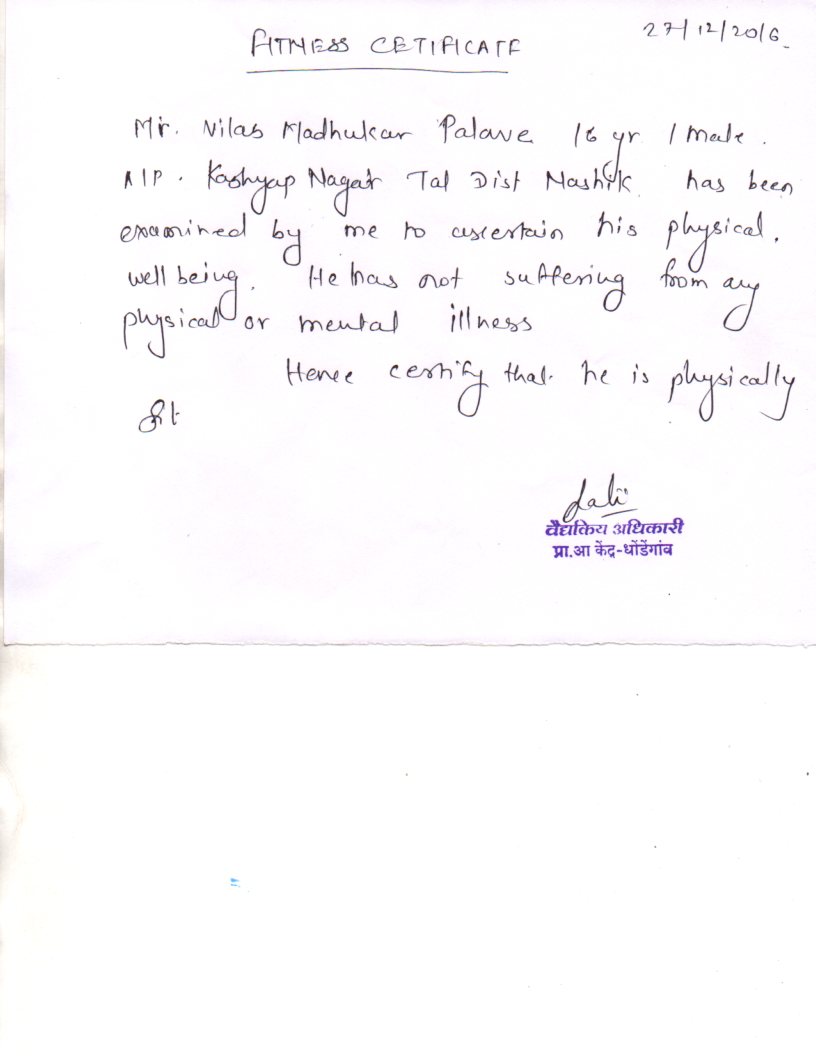 27/12/2016
FITNESS CETIFICATE
Mr. Nilas Madhukar Palave 16 yr / male.
AIP. Kashyap Nagar Tal Dist Nashik has been
examined by me to ascertain his physical.
well being. He has not suffering from any
physical or mental illness
Hence certify that he is physically
fit
वैद्यकिय अधिकारी
प्रा.आ केंद्र-धोंडेगांव